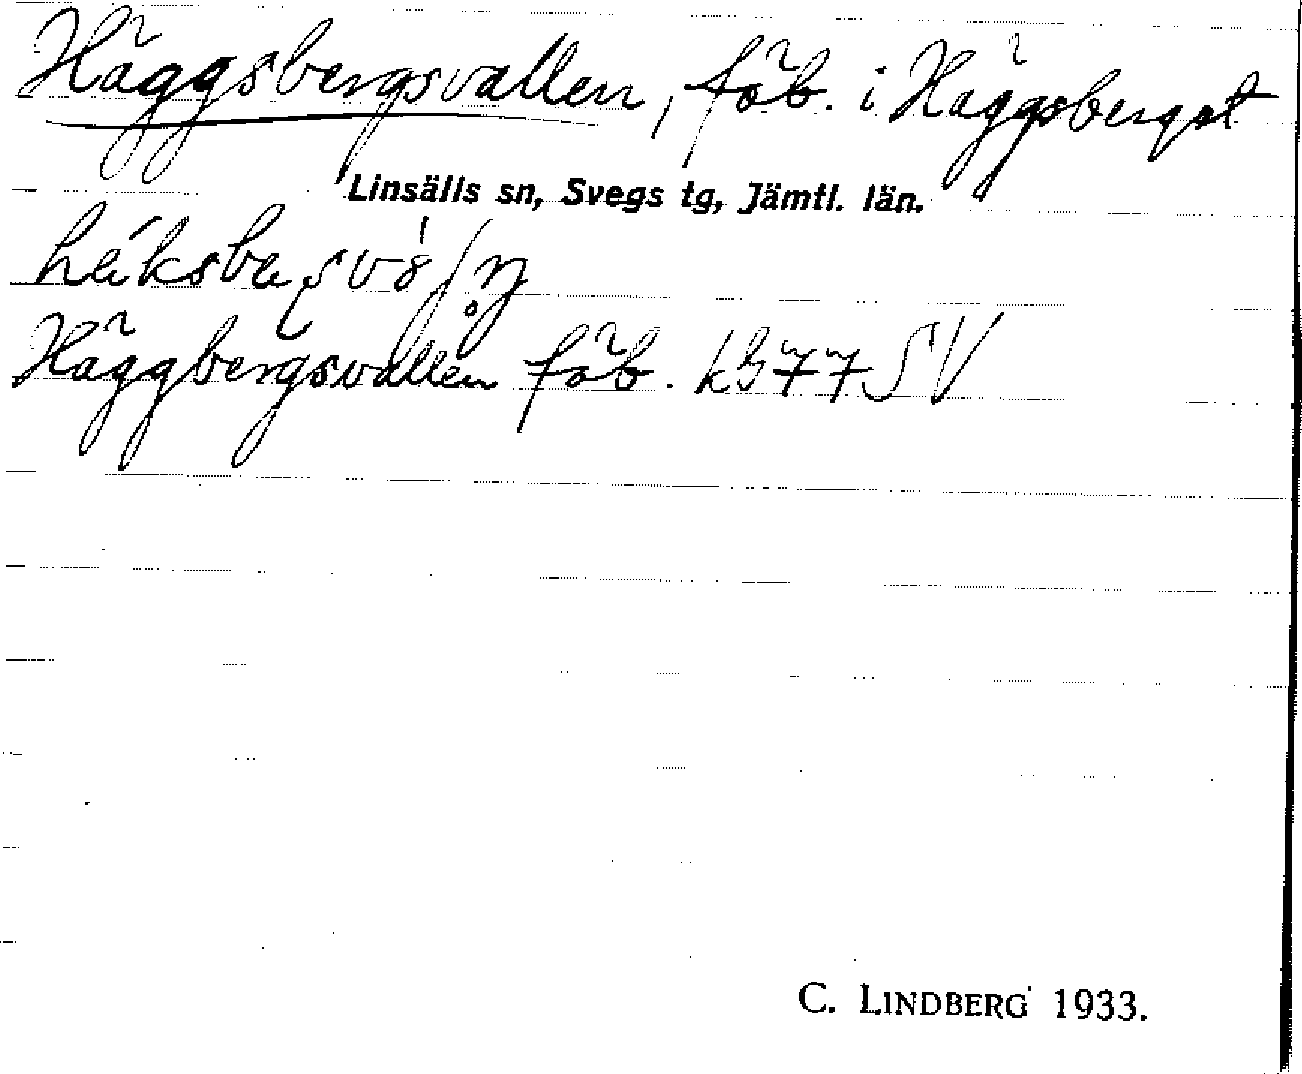 Häggsbergsvallen, fäb. i Häggsberget
Linsälls sn, Svegs tg, Jämtl. län.
Häggbergsvallen fäb. kb 77 SV
C. LINDBERG 1933.